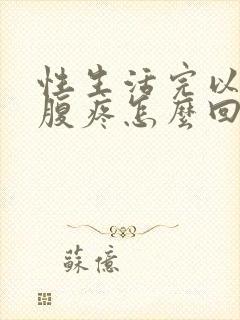 性生活完以
腹疼怎麼回
蘇億